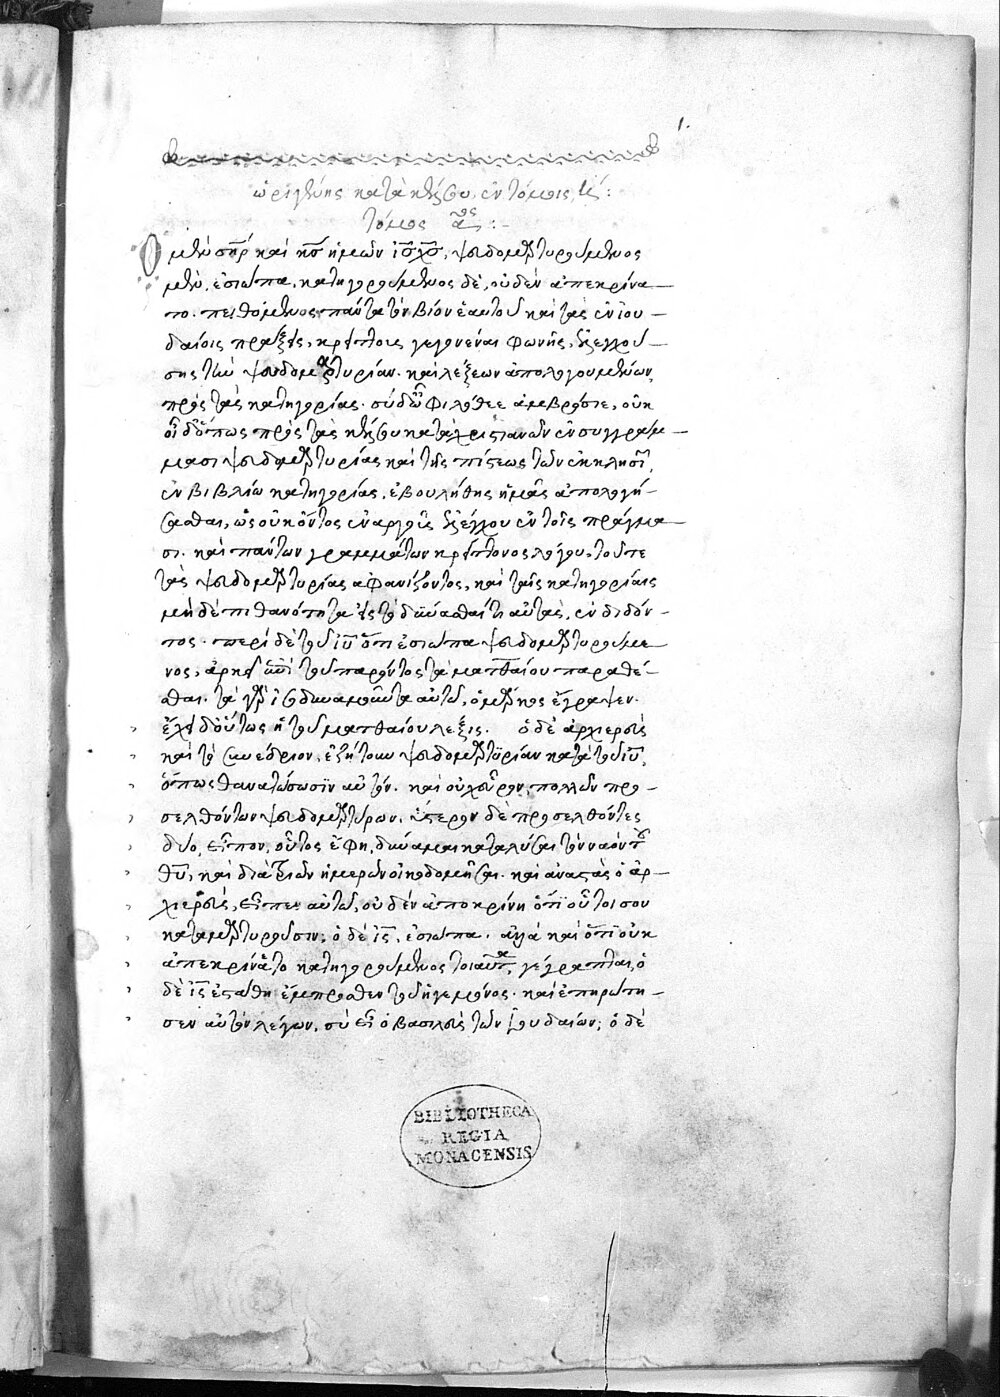 1.
ὠριγένης κατὰ κέλσου ἐν τόμοις η̅:
τόμος α̅ος :-
Ὁ μὲν σηρ καὶ κς ἡμῶν ις χς, ψευδομαρτυρούμενος
μὲν, ἐσιώπα. κατηγορούμενος δὲ, οὐδὲν ἀπεκρίνα-
το. πειθόμενος πάντα τὸν βίον ἑαυτοῦ καὶ τὰς ἐν ἰου-
δαίοις πράξεις, κρείττους γεγονέναι φωνῆς, ἐλεγχού-
σης τὴν ψευδομαρτυρίαν. καὶ λέξεων ἀπολογουμένων
πρὸς τὰς κατηγορίας. σὺ δ' ὦ φιλόθεε ἀμβρόσιε, οὐκ
οἶδ' ὅπως πρὸς τὰς κέλσου κατὰ χριστιανῶν ἐν συγγράμ-
μασι ψευδομαρτυρίας καὶ τῆς πίστεως τῶν ἐκκλησι
ἐν βιβλίω κατηγορίας, ἐβουλήθης ἡμᾶς ἀπολογή-
σασθαι, ὡς οὐκ ὄντος ἐναργοῦς ἐλέγχου ἐν τοῖς πράγμα-
σι. καὶ πάντων γραμμάτων κρείττονος λόγου, τοῦ τε
τὰς ψευδομαρτυρίας ἀφανίζοντος, καὶ ταῖς κατηγορίαις
μηδὲ πιθανότητα εἰς τὸ δύνασθαί τι αὐτὰς, ἐνδιδόν-
τος. περὶ δὲ τοῦ ιυ ὅτι ἐσιώπα ψευδομαρτυρούμε-
νος, ἀρκεῖ ἐπὶ τοῦ παρόντος τὰ ματθαίου παραθέ-
σθαι. τὰ γὰρ ἰσοδυναμοῦντα αὐτῶ, ὁ μάρκος ἔγραψεν.
ἔχει δ' οὕτως ἡ τοῦ ματθαίου λέξις. ὁ δὲ ἀρχιερεὺς
καὶ τὸ συνέδριον, ἐζήτουν ψευδομαρτυρίαν κατὰ τοῦ ιυ,
ὅπως θανατώσωσιν αὐτόν. καὶ οὐχ εὗρον, πολλῶν προ-
σελθόντων ψευδομαρτύρων. ὕστερον δὲ προσελθόντες
δύο, εἶπον, οὗτος ἔφη, δύναμαι καταλῦσαι τὸν ναὸν τοῦ
θυ, καὶ διὰ τριῶν ἡμερῶν οἰκοδομῆσαι. καὶ ἀναστὰς ὁ ἀρ-
χιερεὺς, εἶπεν αὐτῶ, οὐδὲν ἀποκρίνη ὅτι οὗτοι σου
καταμαρτυροῦσιν; ὁ δὲ ις, ἐσιώπα. ἀλλὰ καὶ ὅτι οὐκ
ἀπεκρίνατο κατηγορούμενος τοιαῦτα, γέγραπται, ὁ
δὲ ις ἐστάθη ἔμπροσθεν τοῦ ἡγεμόνος. καὶ ἐπηρώτη-
σεν αὐτὸν λέγων, σὺ εἶ ὁ βασιλεὺς τῶν ἰουδαίων; ὁ δὲ
BIBLIOTHECA
REGIA
MONACENSIS